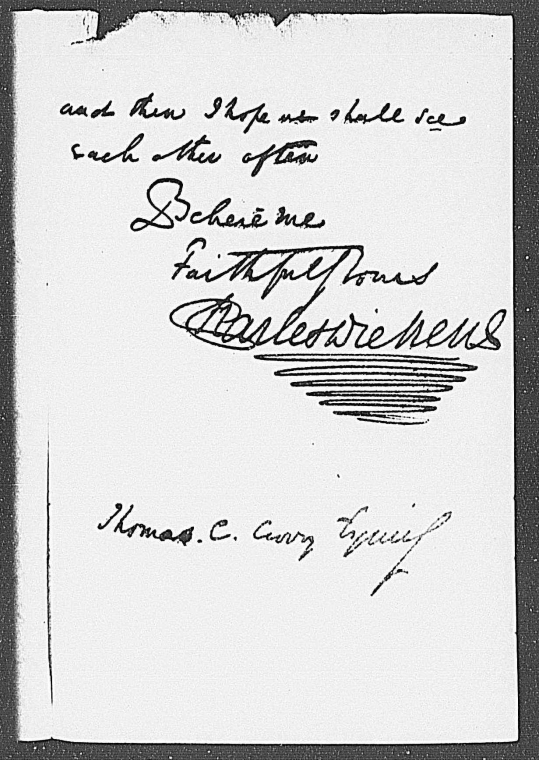 and then I hope we shall see
each other often
Believe me
Faithfully Yours
Charles Dickens
Thomas. C. Esquire